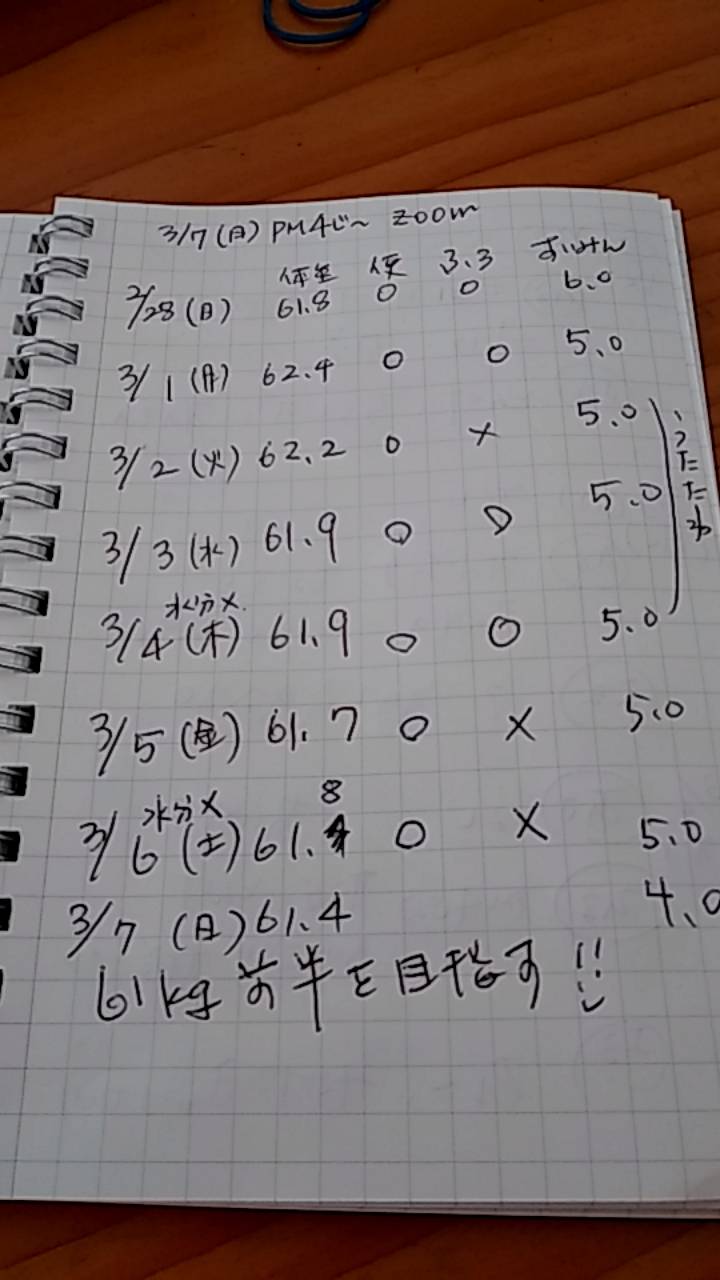 3/7(日) PM4じ〜 zoom
体重 便 ふろ すいみん
2/28(日) 61.8 ○ ○ 6.0
3/1(月) 62.4 ○ ○ 5.0
3/2(火) 62.2 ○ × 5.0
3/3(水) 61.9 ○ ○ 5.0
うたたね
水分×
3/4(木) 61.9 ○ ○ 5.0
3/5(金) 61.7 ○ × 5.0
水分×
8
3/6(土) 61. ○ × 5.0
3/7(日) 61.4 4.0
61kg前半を目指す!!